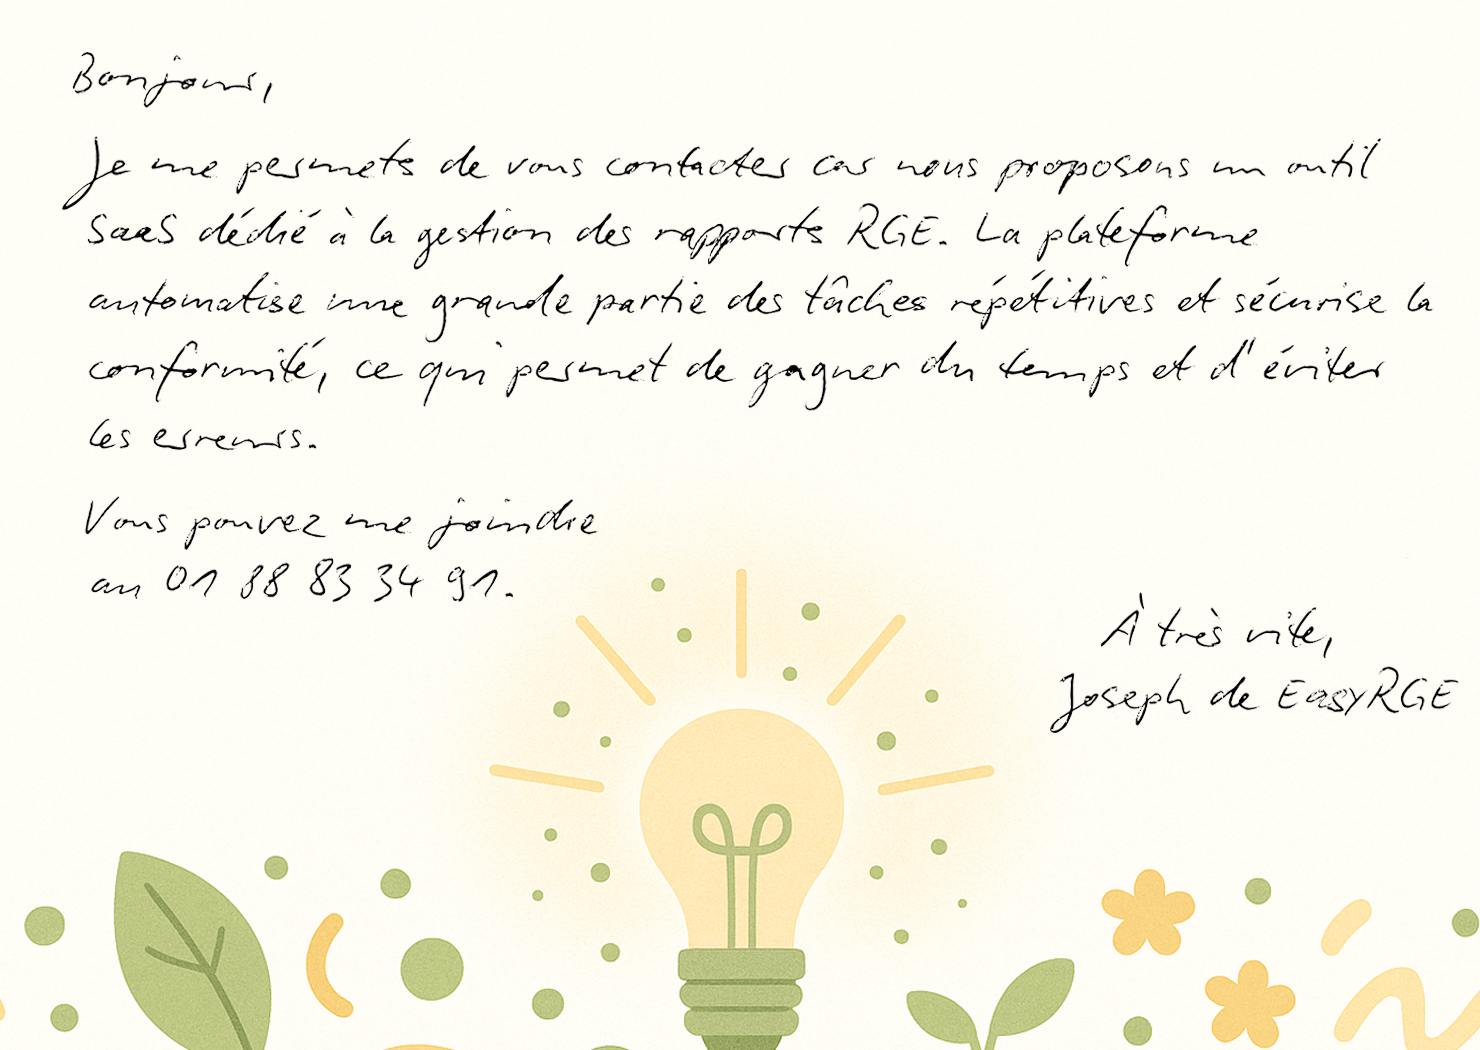 Bonjour,
Je me permets de vous contacter car nous proposons un outil
SaaS dédié à la gestion des rapports RGE. La plateforme
automatise une grande partie des tâches répétitives et sécurise la
conformité, ce qui permet de gagner du temps et d'éviter
les erreurs.
Vous pouvez me joindre
au 01 88 83 34 91.
À très vite,
Joseph de EasyRGE